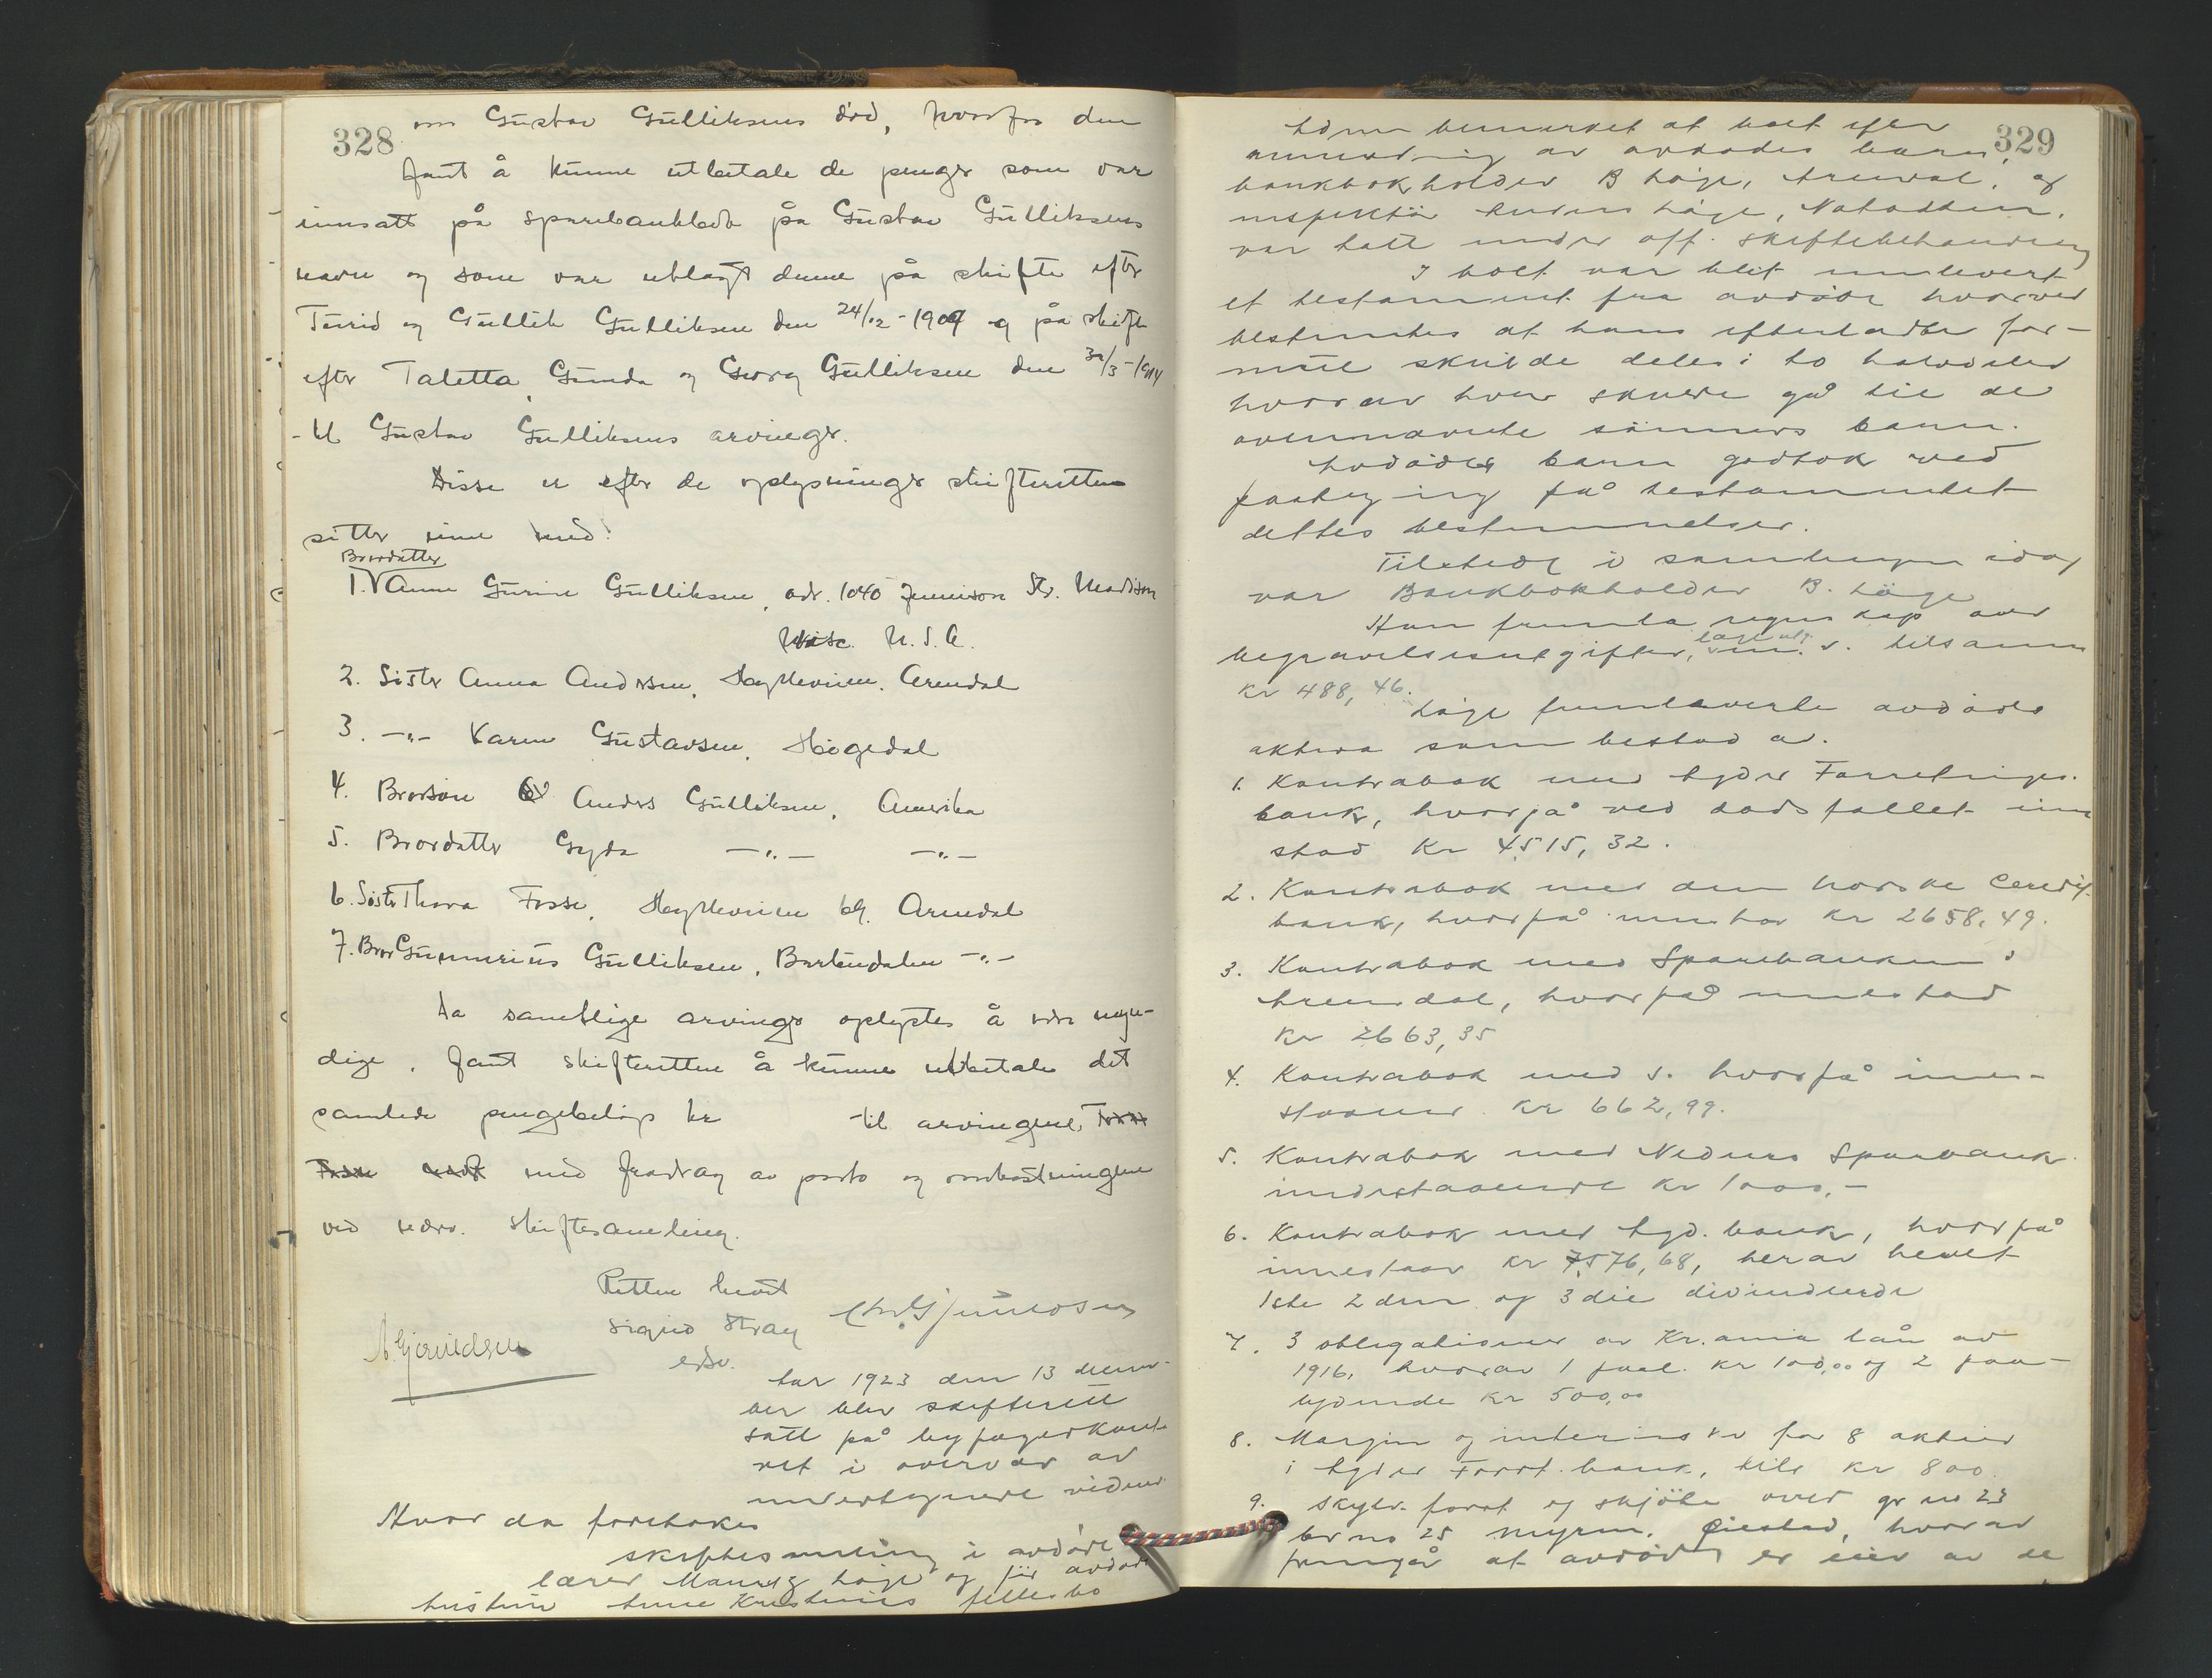 328
om Gustav Gulliksens död, hvorfor den
fant å kunne utbetale de penger som var
innsatt på sparebankbok på Gustav Gulliksens
navn og som var utlagt denne på skifte efter
Turid og Gullik Gulliksen den 24/12-1909 og på skifte
efter Taletta, Gunda og Georg Gulliksen den 30/3-1914
til Gustav Gulliksens arvinger.
Disse er efter de oplysninger skifteretten
sitter inne med:
Brordatter
1. Anne Gurine Gulliksen, adr. 1040 Jennison Str. Madison
Wisc. U.S.A.
2. Söster Anna Andersen, Höyttevirien. Arendal
3. -"- Karen Gustavsen, Högedal
4. Brorsön Anders Gulliksen, Amerika
5. Brordatter Gyda -"- -"-
6. Söster Thora Fosse, Arendal
7. Bror Gunnerius Gulliksen, -"-
Da samtlige arvinger oplystes å være myn-
dige, fant skifteretten å kunne utbetale det
samlede pengebelöp kr til arvingene,
med fradrag av porto og omkostningene
ved nærv. skiftesamling.
Retten hevet
Sigrid Stray
edsv.
A. Gjeruldsen
Aar 1923 den 13 decem-
ber blev skifterett
satt på byfogedkont-
ret i overvær av
undertegnede vidner
Hvor da foretokes
skiftesamling i avdöde
lærer Mauritz Löge og för avdöde
hustru Anne Kristines fellesbo
329
bemerket at boet efter
anmodning av avdödes barn,
bankbokholder B Löge, Arendal, og
inspektör Löge, Notodden,
var tatt under off. skiftebehandling
I boet var blit innlevert
et testament fra avdöde hvorved
bestemtes at hans efterladte for-
mue skulde deles i to halvdeler
hvorav hver skulde gå til de
ovennævnte sönners barn.
Avdödes barn godtok ved
paategning på testamentet
dettes bestemmelser.
Tilstede i samlingen idag
var Bankbokholder B. Löge
Han fremla regnskap over
begravelsesutgifter, m. v. tilsammen
kr 488,46.
Löge fremla avdödes
aktiva som bestod av.
1. Kontrabok med Agder Forretnings-
bank, hvorpå ved dödsfallet inne
stod Kr 4515,32.
2. Kontrabok med den norske Credit-
bank, hvorpå innstod Kr 2658,49.
3. Kontrabok med Sparebanken i
Arendal, hvorpå innestod
Kr 2663,35
4. Kontrabok med s. hvorpå inne-
staaende Kr 662,99.
5. Kontrabok med Nedenes Sparebank
indestaaende Kr 1000,-
6. Kontrabok med Agd. bank, hvorpå
innestaar Kr 7576,68, herav hevet
1ste 2den og 3die dividende
7. 3 obligationer av Kr.ania lån av
1916, hvorav 1 paal. kr 100,00 og 2 paa-
lydende kr 500,00
8. Margin og interims kv for 8 aktier
i Agder Forr. bank, tils kr 800.
9. Skyld. forr og skjöte over gr no 23
br no 25 Myren, Öiestad, hvorav
fremgår at avdöde er eier av de